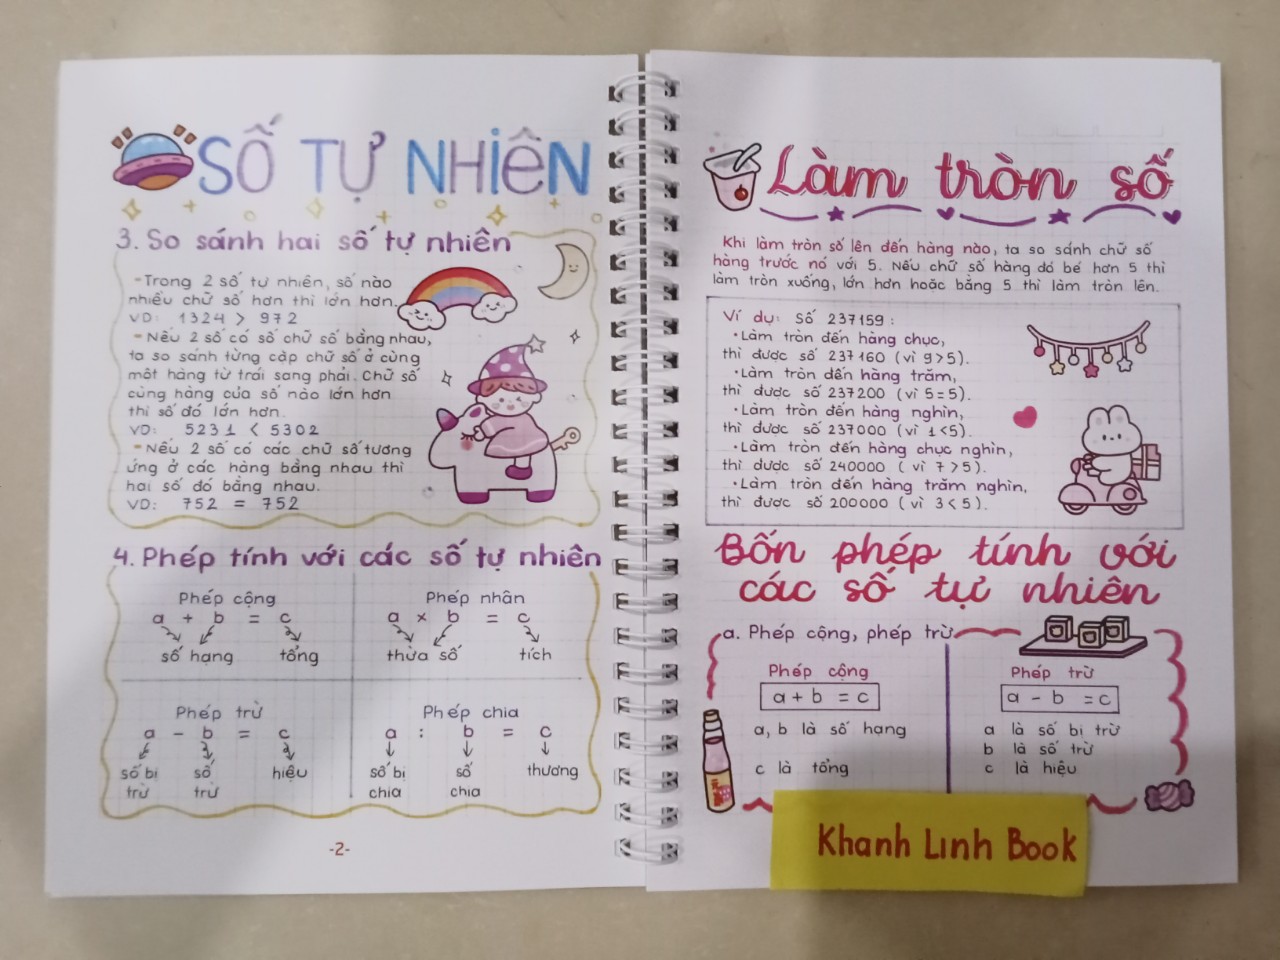 SỐ TỰ NHIÊN
3. So sánh hai số tự nhiên
- Trong 2 số tự nhiên, số nào
nhiều chữ số hơn thì lớn hơn.
VD: 1324 > 972
- Nếu 2 số có số chữ số bằng nhau,
ta so sánh từng cặp chữ số ở cùng
một hàng từ trái sang phải. Chữ số
cùng hàng của số nào lớn hơn
thì số đó lớn hơn.
VD: 5231 < 5302
- Nếu 2 số có các chữ số tương
ứng ở các hàng bằng nhau thì
hai số đó bằng nhau.
VD: 752 = 752
4. Phép tính với các số tự nhiên
Phép cộng
a + b = c
số hạng tổng
Phép nhân
a × b = c
thừa số tích
Phép trừ
a - b = c
số bị số hiệu
trừ trừ
Phép chia
a : b = c
số bị số thương
chia chia
-2-
Làm tròn số
Khi làm tròn số lên đến hàng nào, ta so sánh chữ số
hàng trước nó với 5. Nếu chữ số hàng đó bé hơn 5 thì
làm tròn xuống, lớn hơn hoặc bằng 5 thì làm tròn lên.
Ví dụ: Số 237159 :
• Làm tròn đến hàng chục,
thì được số 237160 (vì 9>5).
• Làm tròn đến hàng trăm,
thì được số 237200 (vì 5=5).
• Làm tròn đến hàng nghìn,
thì được số 237000 (vì 1<5).
• Làm tròn đến hàng chục nghìn,
thì được số 240000 ( vì 7 >5).
• Làm tròn đến hàng trăm nghìn,
thì được số 200000 ( vì 3< 5).
Bốn phép tính với
các số tự nhiên
a. Phép cộng, phép trừ
Phép cộng
a + b = c
a, b là số hạng
c là tổng
Phép trừ
a - b = c
a là số bị trừ
b là số trừ
c là hiệu
Khanh Linh Book